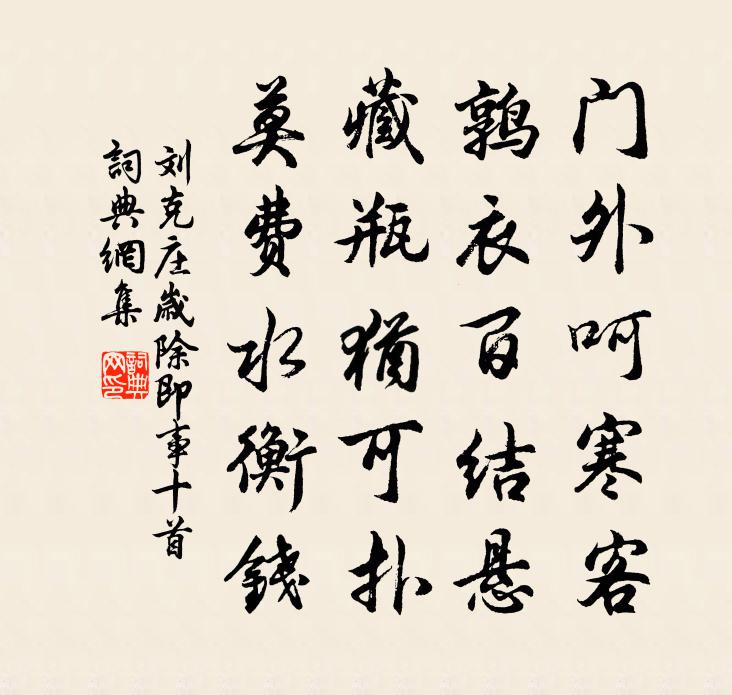 门外呵寒客
鹑衣百结悬
藏瓶猶可扑
莫费水衡錢
刘克庄歳除即事十首
詞典網集
詞典网印